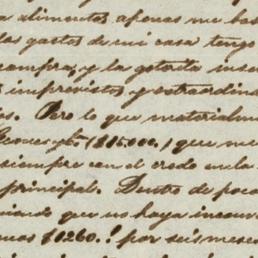 a alimentos apenas me bas
los gastos de mi casa tengo
compra, y la gotorita
s imprevistos y estraordina
os. Pero lo que materialm
($15.000,) que me
siempre con el credo en la
principal. Dentro de poco
que no haya
10260.! por seis meses